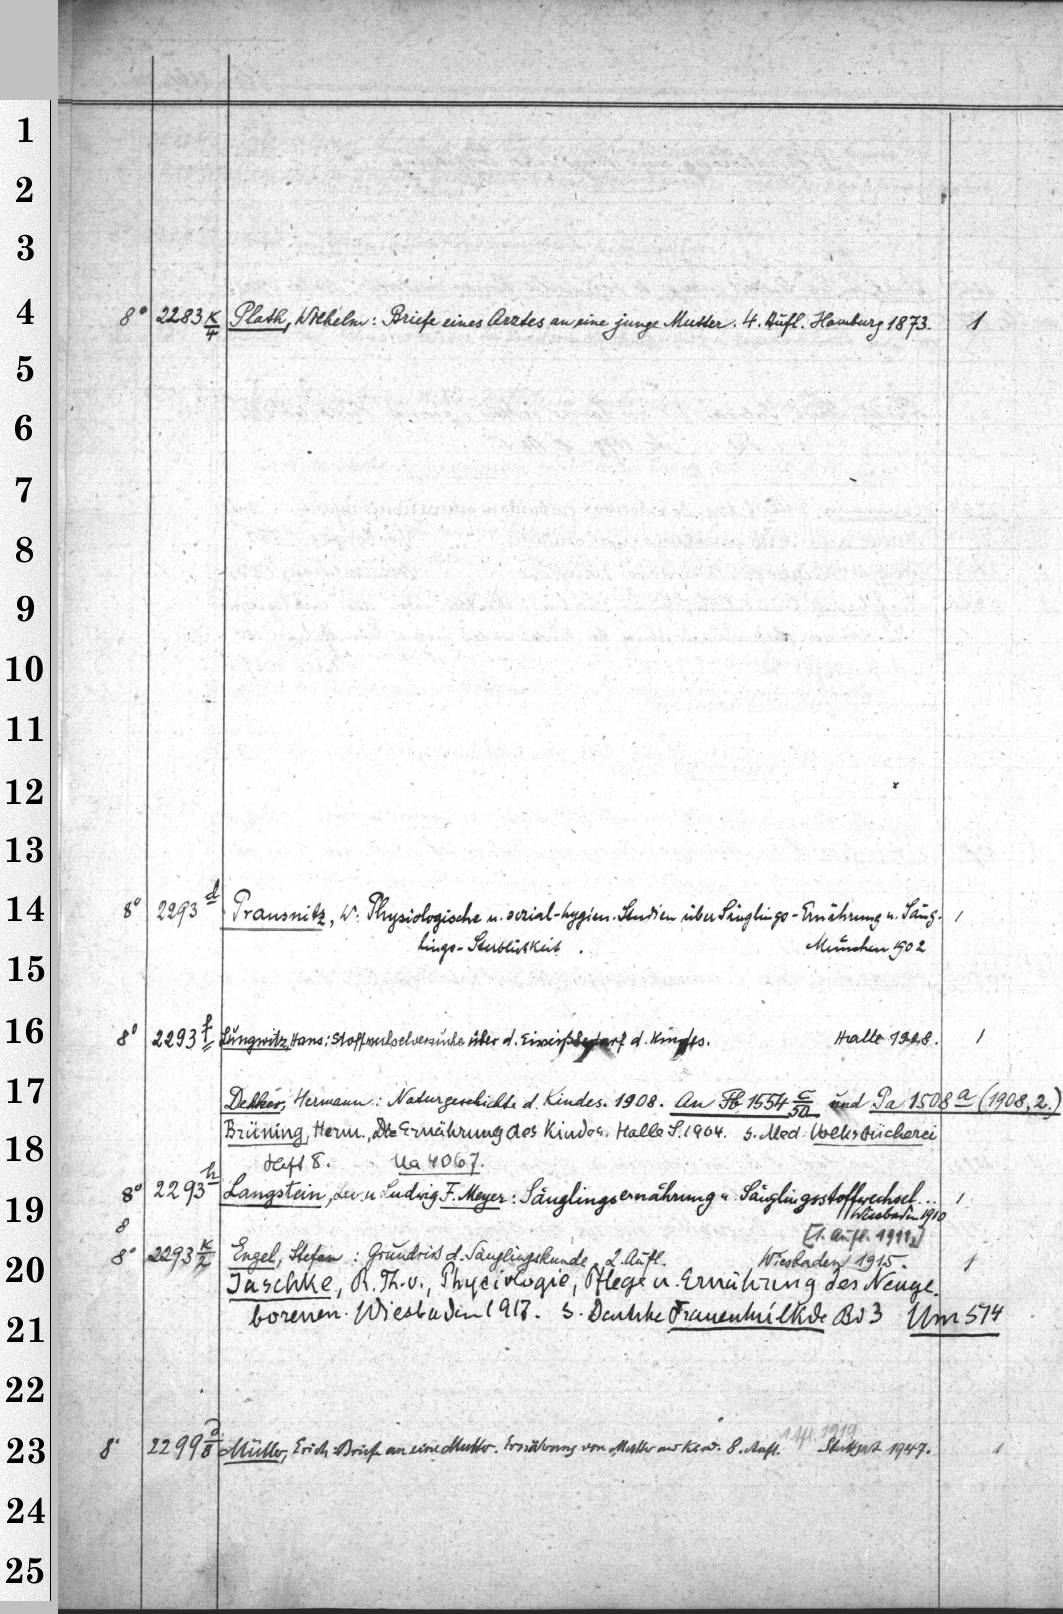 1
2
3
4
8° 2283 K/4 Plath, Wilhelm: Briefe eines Arztes an eine junge Mutter. 4. Aufl. Hamburg 1873. 1
5
6
7
8
9
10
11
12
13
14
8° 2293 d Prausnitz, W: Physiologische u. sozial-hygien. Studien über Säuglings-Ernährung u. Säug- 1
lings-Sterblichkeit. München 1902
15
16
8° 2293 f Lungwitz, Hans: Stoffwechselversuche über d. Eiweißbedarf d. Kindes. Halle 1908. 1
17
Dekker, Hermann: Naturgeschichte d. Kindes. 1908. An Fb 1554 c/50 und Pa 1508 a (1908, 2.)
18
Brüning, Herm., Die Ernährung des Kindes. Halle S. 1904. s. Med. Volksbücherei
Heft 8. Ua 4067.
19
8° 2293 h Langstein, Leo u. Ludwig F. Meyer: Säuglingsernährung u. Säuglingsstoffwechsel... 1
Wiesbaden 1910
8
20
8° 2293 K/2 Engel, Stefan: Grundriss d. Säuglingskunde. 2. Aufl. Wiesbaden 1915. 1
Jaschke, R. Th. v., Physiologie, Pflege u. Ernährung des Neuge-
21
borenen. Wiesbaden 1917. s. Deutsche Frauenheilkde Bd 3 Um 574
22
23
8° 2299 Müller, Erich: Briefe an eine Mutter. Ernährung von Mutter und Kind. 8. Aufl. Stuttgart 1947. 1
24
25